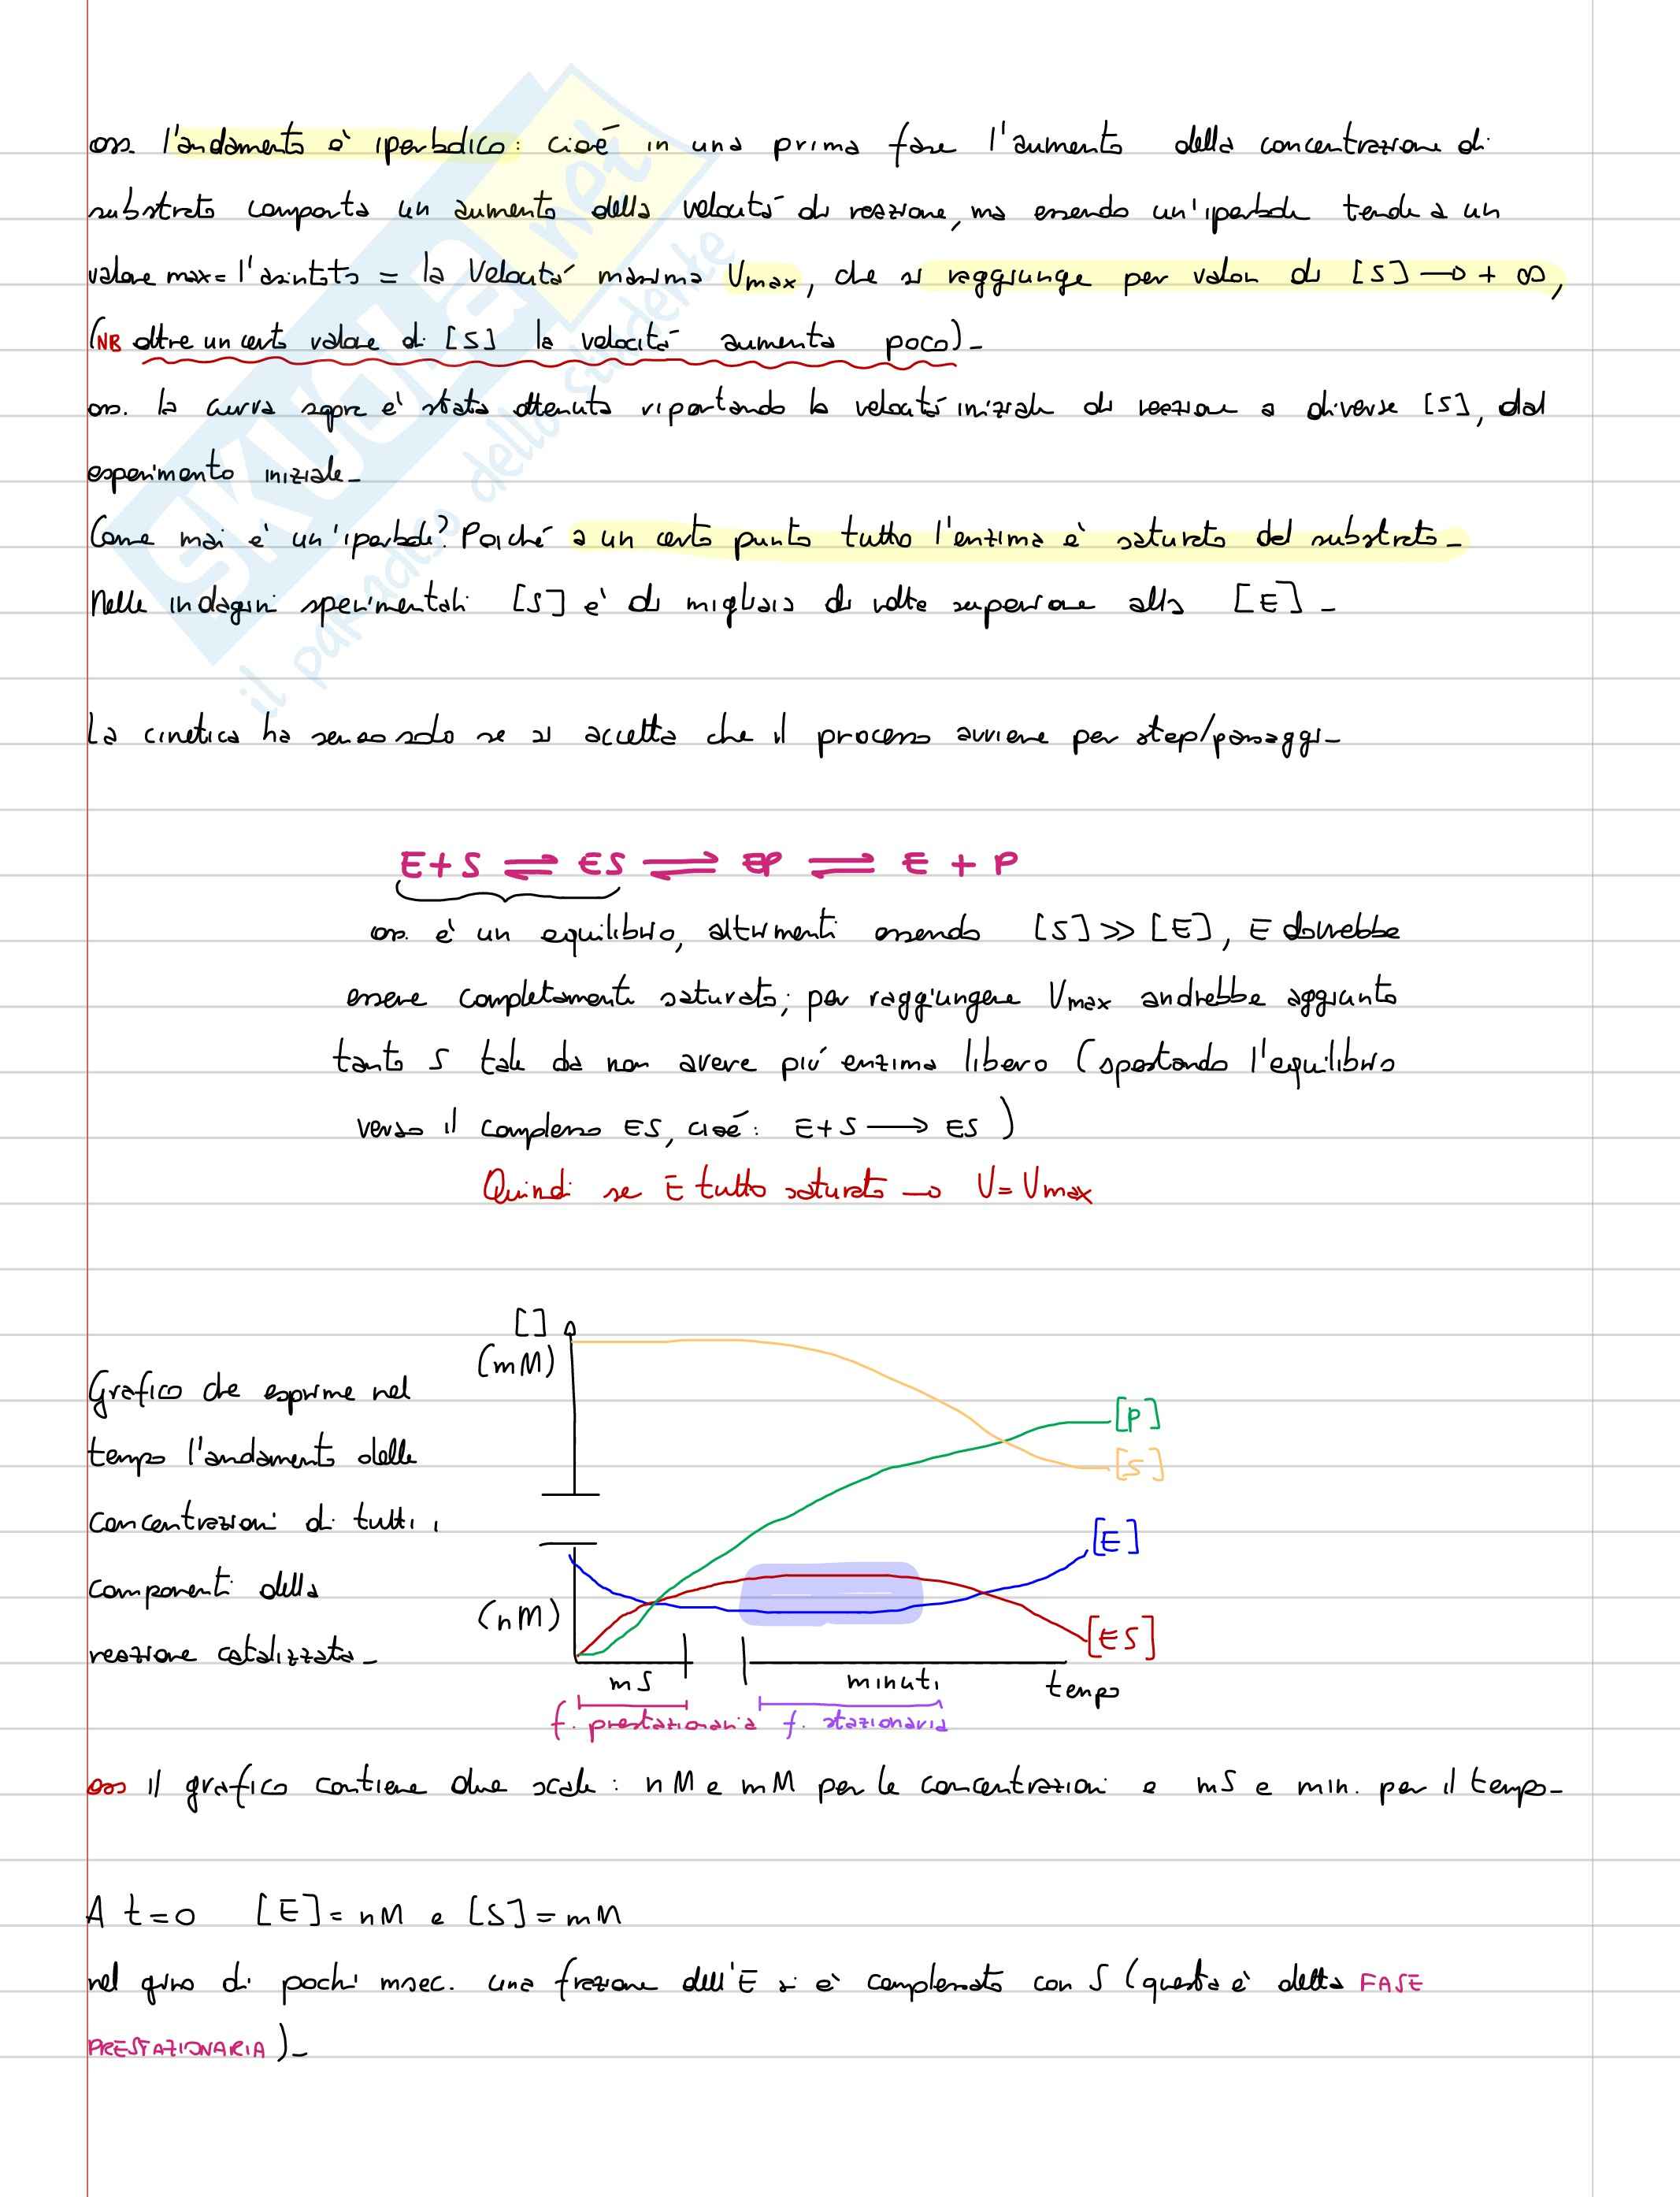 oss. l'andamento è iperbolico: cioè in una prima fase l'aumento della concentrazione di
substrato comporta un aumento della velocità di reazione, ma essendo un'iperbole tende a un
valore max = l'asintoto = la Velocità massima Vmax, che si raggiunge per valori di [S] → + ∞,
(NB oltre un certo valore di [S] la velocità aumenta poco)-
oss. la curva sopra è stata ottenuta riportando la velocità iniziale di reazione a diverse [S], dal
esperimento iniziale-
Come mai è un'iperbole? Poiché a un certo punto tutto l'enzima è saturato dal substrato-
Nelle indagini sperimentali [S] è di migliaia di volte superiore alla [E]-
La cinetica ha senso solo se si accetta che il processo avviene per step/passaggi-
E+S ⇌ ES ⇌ EP ⇌ E + P
oss. è un equilibrio, altrimenti essendo [S] >> [E], E dovrebbe
essere completamente saturato; per raggiungere Vmax andrebbe aggiunto
tanto S tale da non avere più enzima libero (spostando l'equilibrio
verso il complesso ES, cioè: E+S → ES)
Quindi se E tutto saturato → V= Vmax
Grafico che esprime nel
tempo l'andamento delle
concentrazioni di tutti i
componenti della
reazione catalizzata-
[]
(mM)
(nM)
[P]
[S]
[E]
[ES]
mS minuti tempo
f. prestazionaria f. stazionaria
oss il grafico contiene due scale: nM e mM per le concentrazioni e mS e min. per il tempo-
A t=0 [E]= nM e [S]= mM
nel giro di pochi msec. una frazione dell'E si è complessato con S (questa è detta FASE
PRESTAZIONARIA)-
SKUOLA.net
il paradiso dello studente